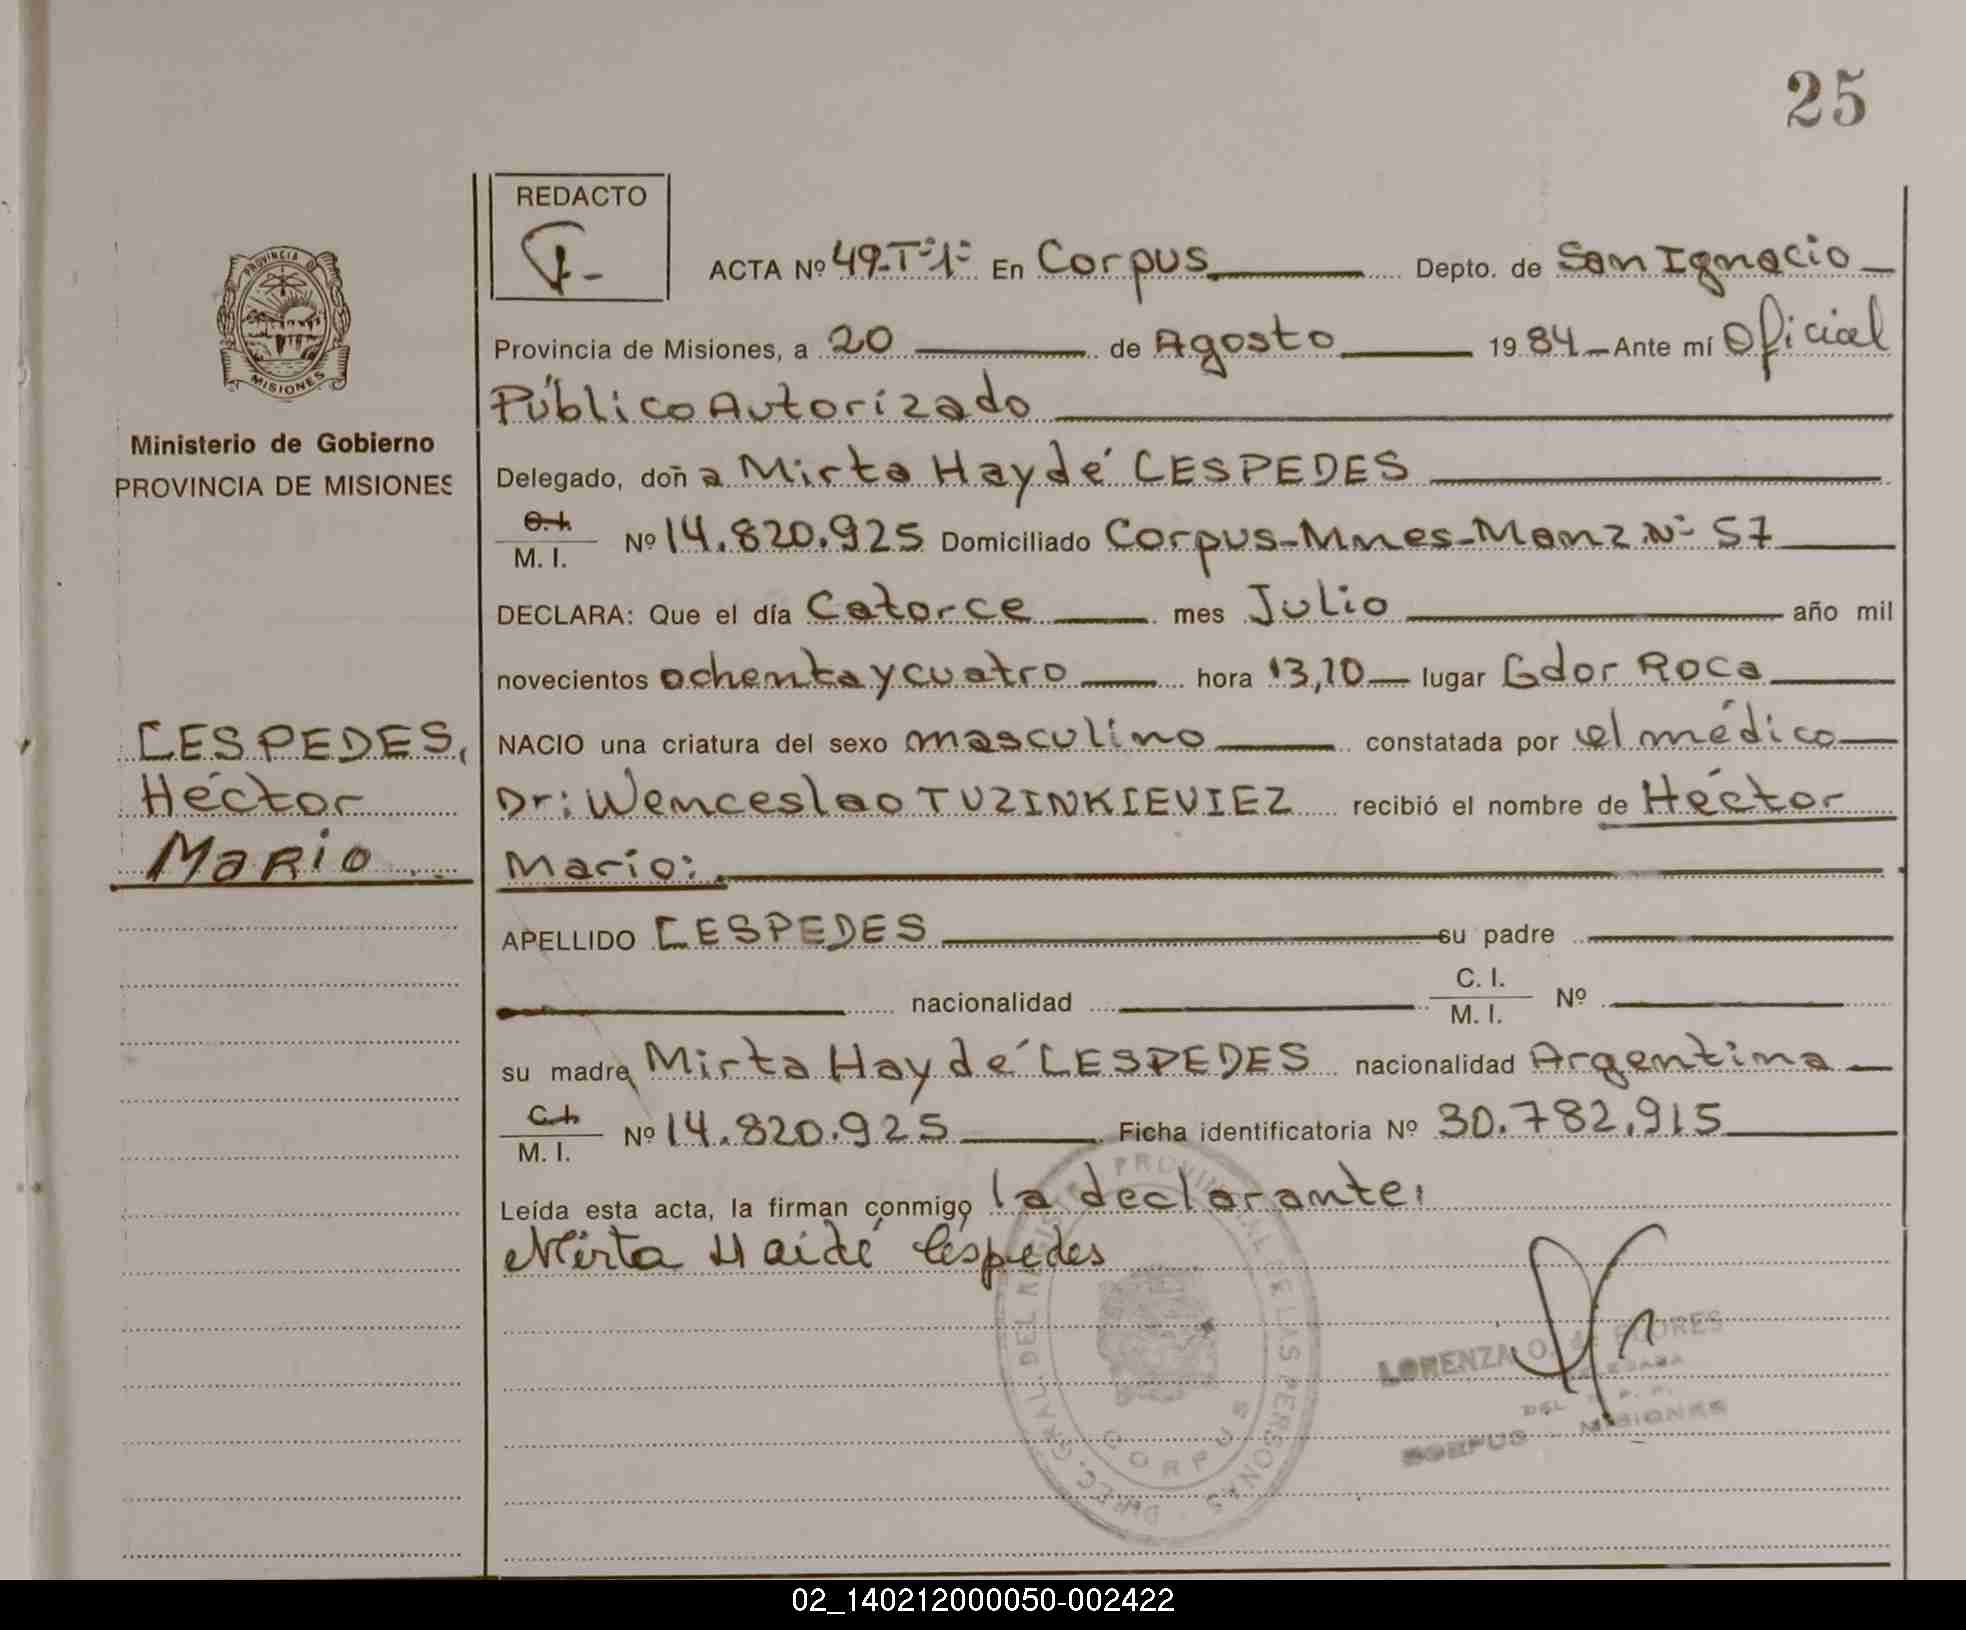 25
REDACTO
PROVINCIA D
MISIONES
Ministerio de Gobierno
PROVINCIA DE MISIONES
CESPEDES,
Héctor
Mario
ACTA Nº 49-Tº1º En Corpus Depto. de San Ignacio
Provincia de Misiones, a 20 de Agosto 1984 Ante mí Oficial
Público Autorizado
Delegado, doña Mirta Haydé CESPEDES
C.I. / M. I. Nº 14.820.925 Domiciliado Corpus-Mnes-Manz Nº 57
DECLARA: Que el día Catorce mes Julio año mil
novecientos ochenta y cuatro hora 13,10 lugar Gdor Roca
NACIO una criatura del sexo masculino constatada por el médico
Dr: Wenceslao TUZINKIEVIEZ recibió el nombre de Héctor
Mario:
APELLIDO CESPEDES su padre
nacionalidad C. I. / M. I. Nº
su madre Mirta Haydé CESPEDES nacionalidad Argentina
C.I. / M. I. Nº 14.820.925 Ficha identificatoria Nº 30.782.915
Leída esta acta, la firman conmigo la declarante.
Mirta Haidé Céspedes
DIREC. GRAL. DEL REGISTRO PROVINCIAL DE LAS PERSONAS
CORPUS
LORENZA O. de FLORES
DELEGADA
DEL P. P.
CORPUS - MISIONES
02_140212000050-002422